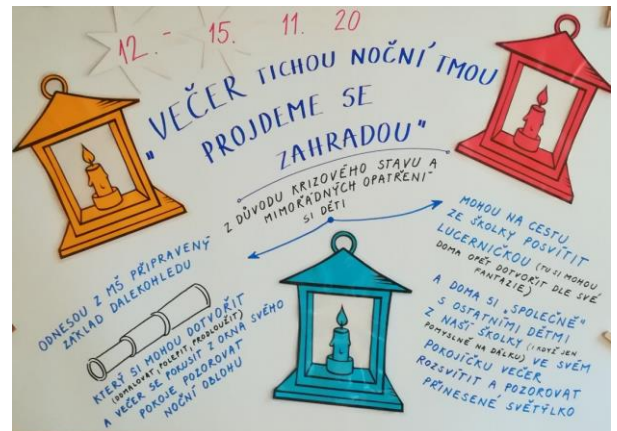 12. - 15. 11. 20
"VEČER TICHOU NOČNÍ TMOU
PROJDEME SE
ZAHRADOU"
Z DŮVODU KRIZOVÉHO STAVU A
MIMOŘÁDNÝCH OPATŘENÍ
SI DĚTI
ODNESOU Z MŠ PŘIPRAVENÝ
ZÁKLAD DALEKOHLEDU
KTERÝ SI MOHOU DOTVOŘIT
(DOMALOVAT, POLEPIT, PRODLOUŽIT)
A VEČER SE POKUSIT Z OKNA SVÉHO
POKOJE POZOROVAT
NOČNÍ OBLOHU
MOHOU NA CESTU
ZE ŠKOLKY POSVÍTIT
LUCERNIČKOU (TU SI MOHOU
DOMA OPĚT DOTVOŘIT DLE SVÉ
FANTAZIE)
A DOMA SI „SPOLEČNĚ"
S OSTATNÍMI DĚTMI
Z NAŠÍ ŠKOLKY (I KDYŽ JEN
POMYSLNĚ NA DÁLKU) VE SVÉM
POKOJÍČKU VEČER
ROZSVÍTIT A POZOROVAT
PŘINESENÉ SVĚTÝLKO